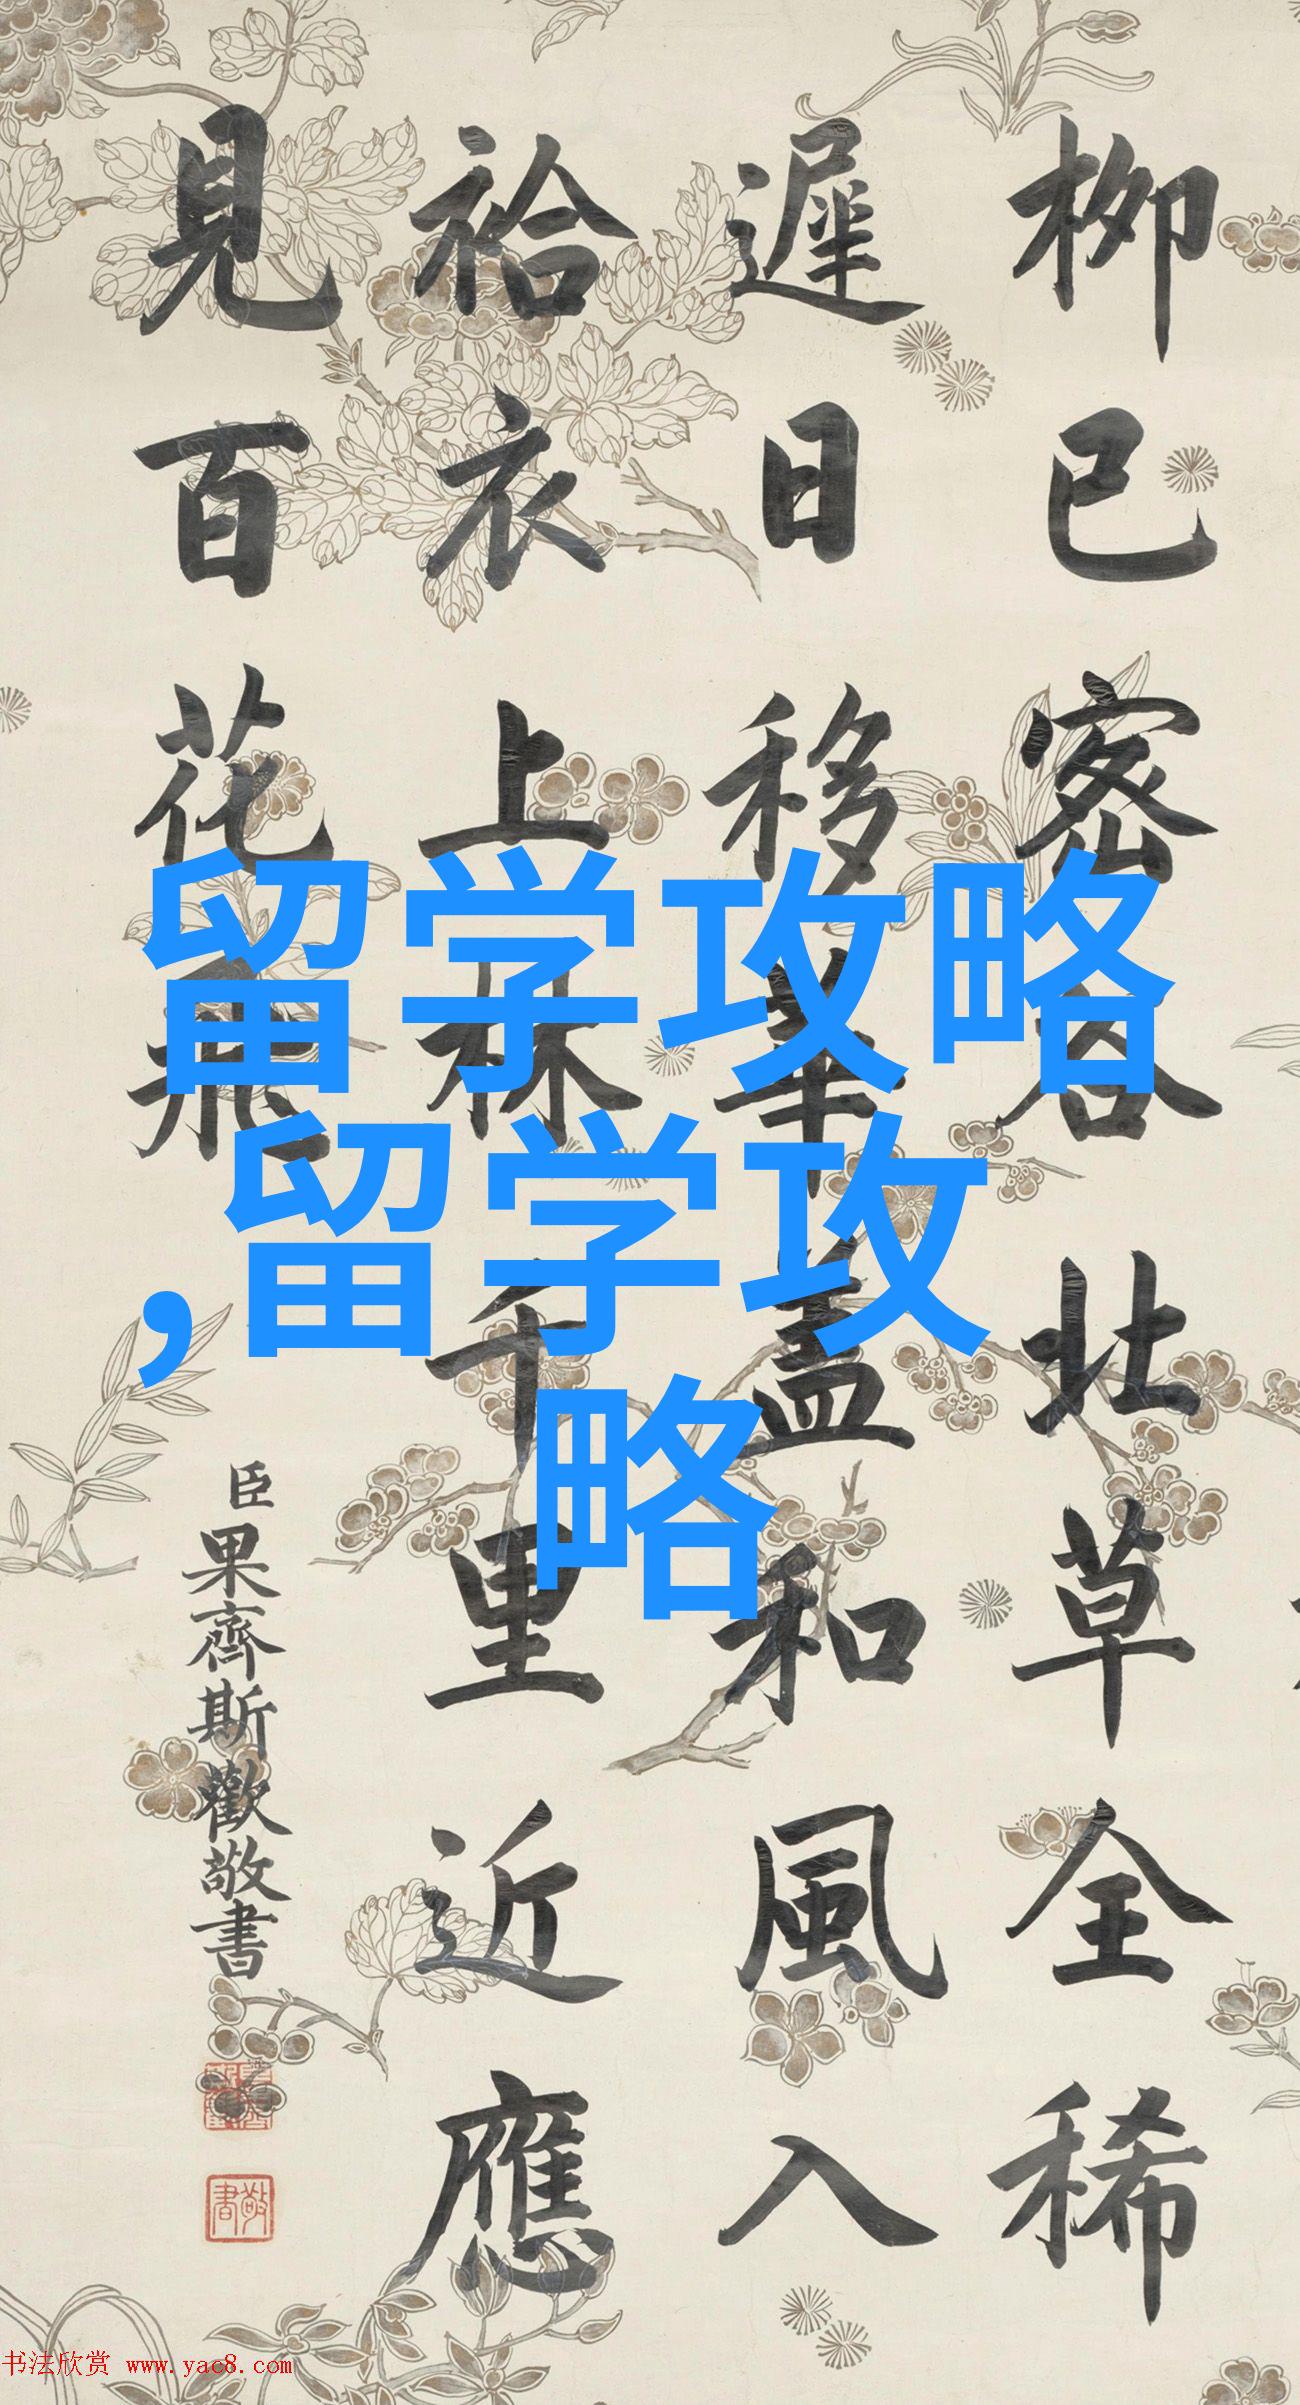 柳已密谷北草全稀
遲日移華蓋和風入
袷衣上林千里近應
見百花飛
臣果齊斯歡敬書
敬書
留学攻略
,留学攻
略
书法欣赏 www.yac8.com